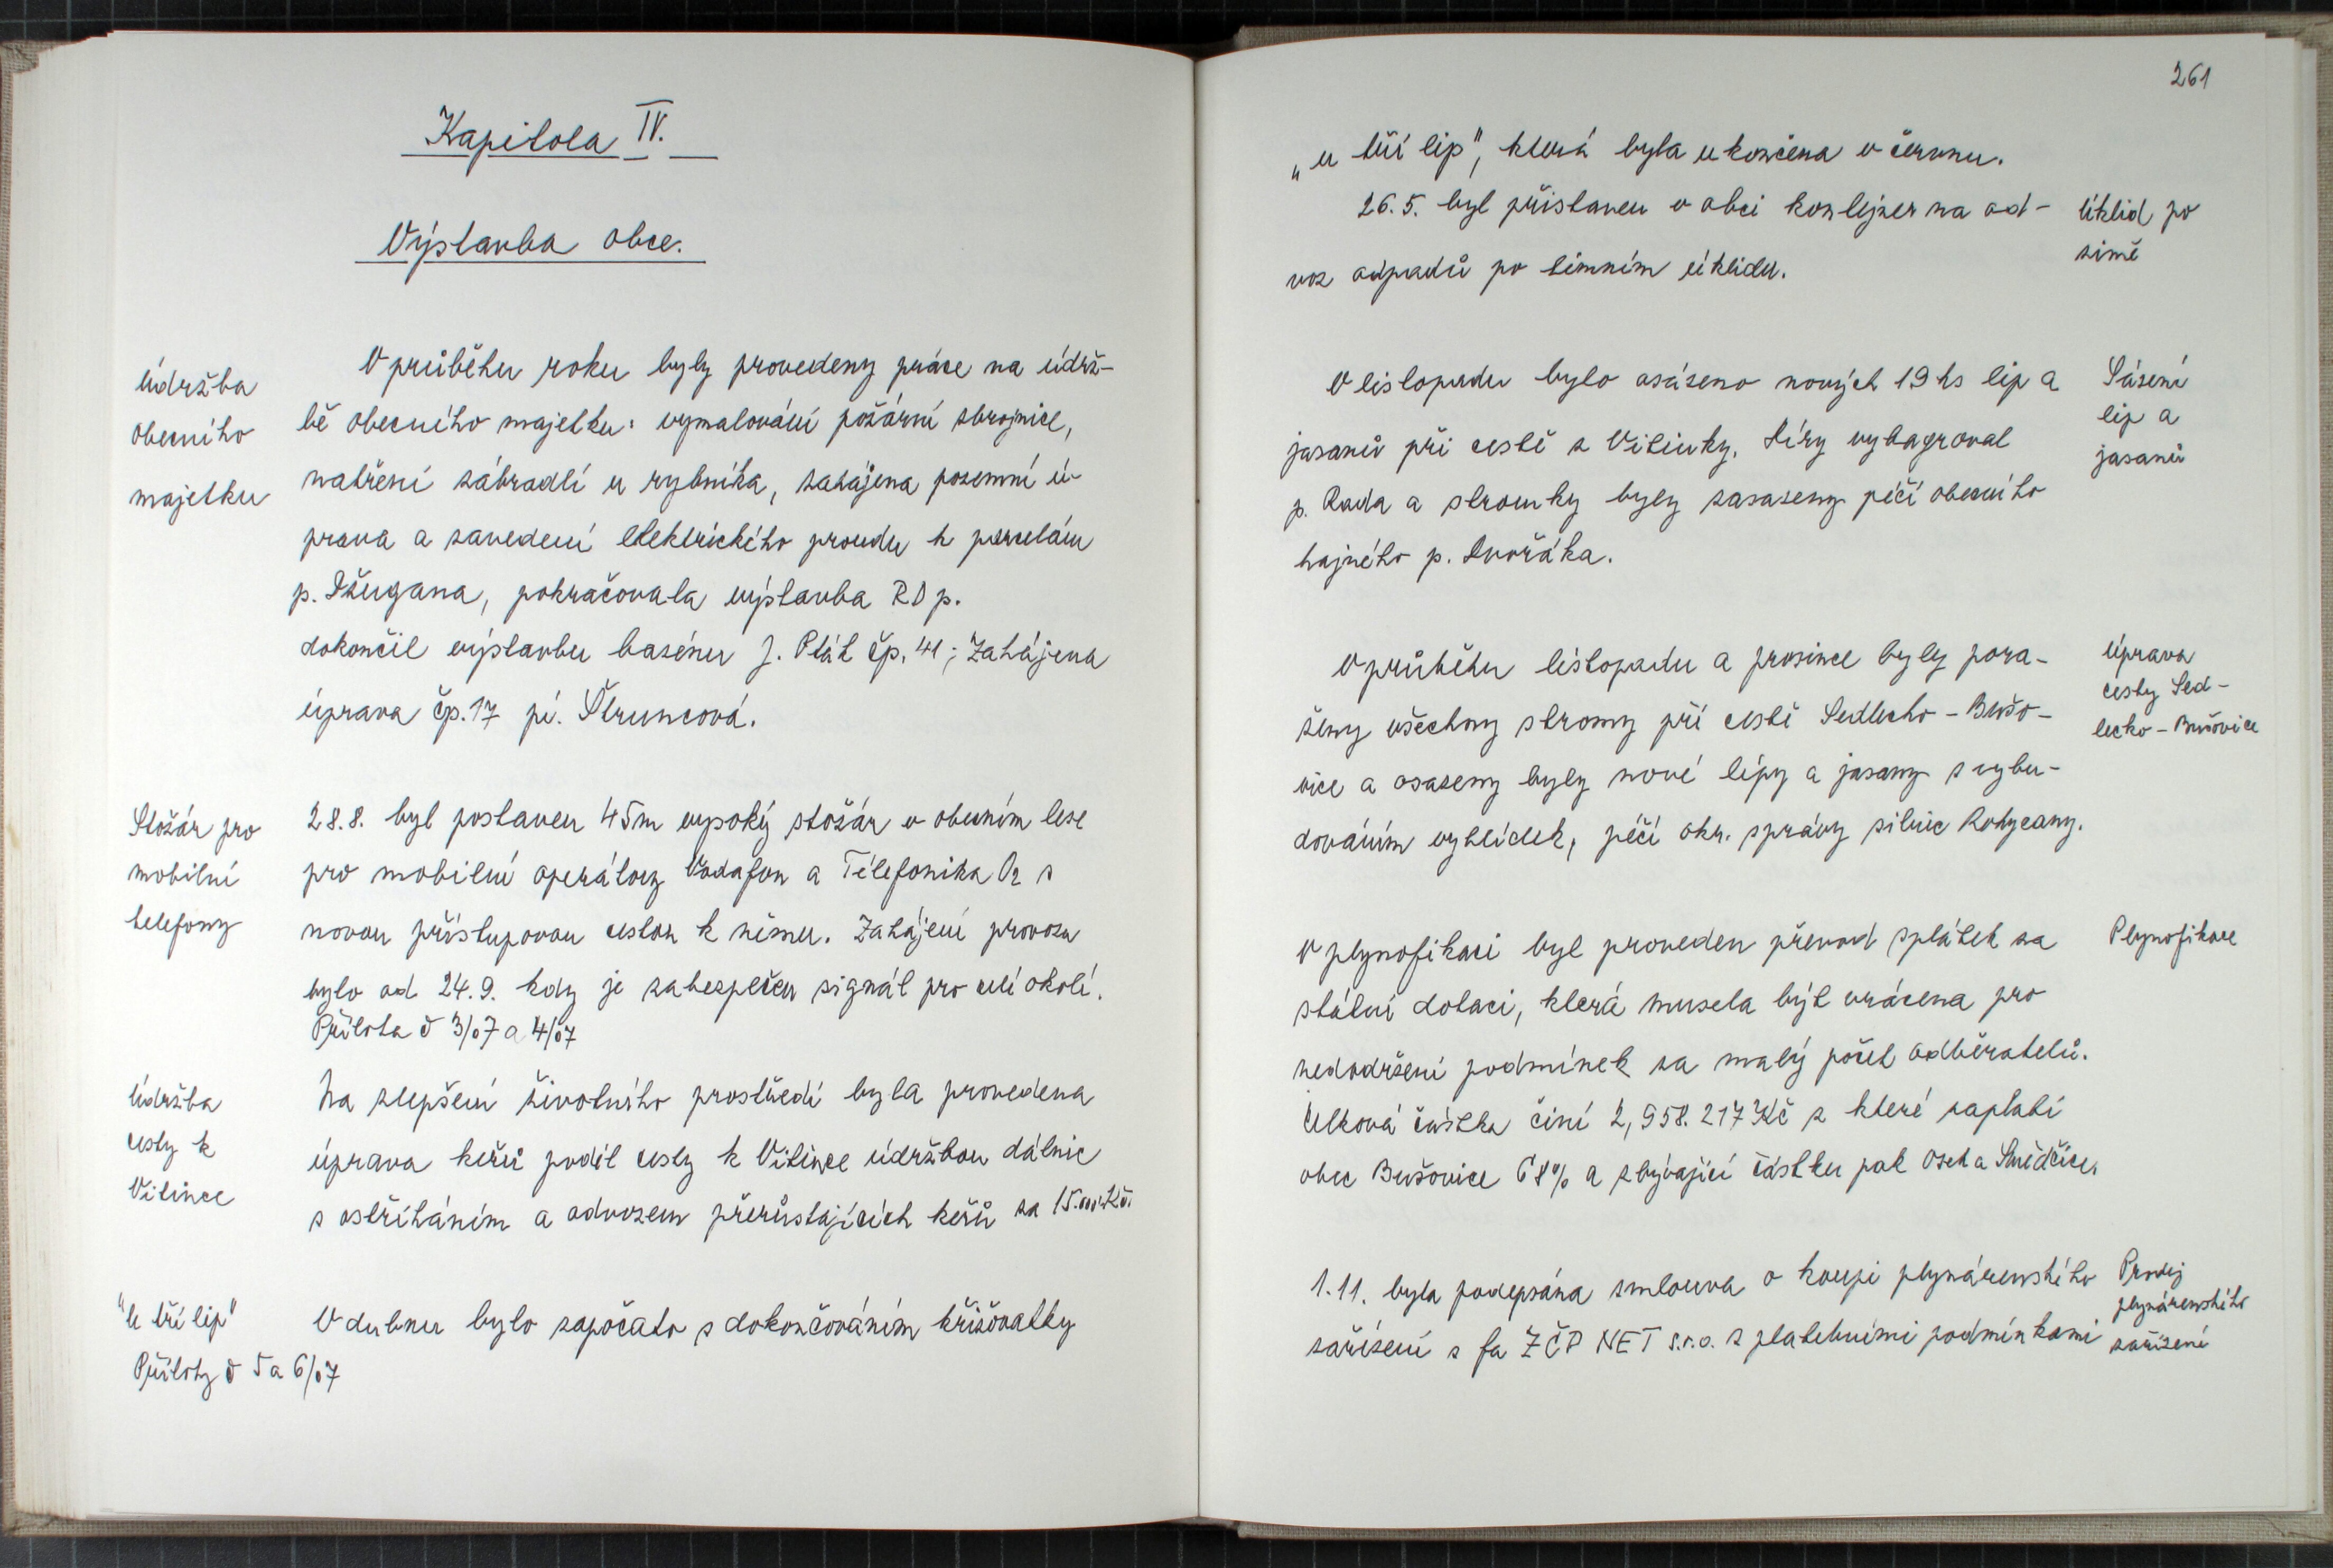 Kapitola IV.
Výstavba obce.
Údržba
obecního
majetku
V průběhu roku byly provedeny práce na údrž-
bě obecního majetku: vymalování požární zbrojnice,
natření zábradlí u rybníka, zahájena pozemní ú-
prava a zavedení elektrického proudu k parcelám
p. Džugana, pokračovala výstavba RD p.
dokončil výstavbu basénu J. Pták čp. 41; Zahájena
úprava čp. 17 pí. Štruncová.
Stožár pro
mobilní
telefony
28.8. byl postaven 45m vysoký stožár v obecním lese
pro mobilní operátory Vodafon a Télefonika O2 s
novou přístupovou cestou k němu. Zahájení provozu
bylo od 24.9. kdy je zabezpečen signál pro celé okolí.
Příloha č 3/07 a 4/07
Údržba
cesty k
Vitince
Na zlepšení životního prostředí byla provedena
úprava keřů podél cesty k Vitince údržbou dálnic
s ostříháním a odvozem přerůstajících keřů za 15.000 Kč.
"U tří lip"
Přílohy č 5 a 6/07
V dubnu bylo započato s dokončováním křižovatky
261
„u tří lip", která byla ukončena v červnu.
26.5. byl přistaven v obci kontejner na od-
voz odpadů po zimním úklidu.
Úklid po
zimě
V listopadu bylo osázeno nových 19 ks lip a
jasanů při cestě z Vitinky. Díry vybagroval
p. Rada a stromky byly zasazeny péčí obecního
hajného p. Dvořáka.
Sázení
lip a
jasanů
V průběhu listopadu a prosince byly pora-
ženy všechny stromy při cestě Sedlecko - Bušo-
vice a osazeny byly nové lípy a jasany s vybu-
dováním vyhlídek, péčí okr. správy silnic Rokycany.
Úprava
cesty Sed-
lecko - Bušovice
V plynofikaci byl proveden převod splátek za
státní dotaci, která musela být vrácena pro
nedodržení podmínek za malý počet odběratelů.
Celková částka činí 2,958.217 Kč z které zaplatí
obec Bušovice 68% a zbývající částku pak Osek a Smědčice.
Plynofikace
1.11. byla podepsána smlouva o koupi plynárenského
zařízení s fa ZČP NET s.r.o. s platebními podmínkami
Prodej
plynárenského
zařízení